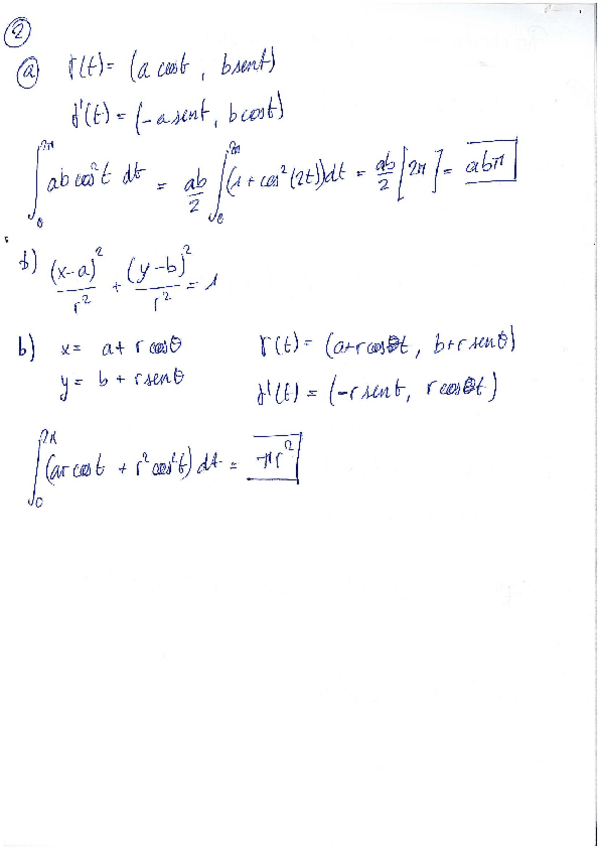 2
a) γ(t) = (a cost, b sent)
γ'(t) = (-a sent, b cost)
∫₀^{2π} ab cos²t dt = ab/2 ∫₀^{2π} (1 + cos²(2t)) dt = ab/2 [2π] = abπ
b) (x-a)²/r² + (y-b)²/r² = 1
b) x = a + r cosθ γ(t) = (a+r cost, b+r senθ)
y = b + r senθ γ'(t) = (-r sent, r cost)
∫₀^{2π} (ar cost + r² cos²t) dt = πr²